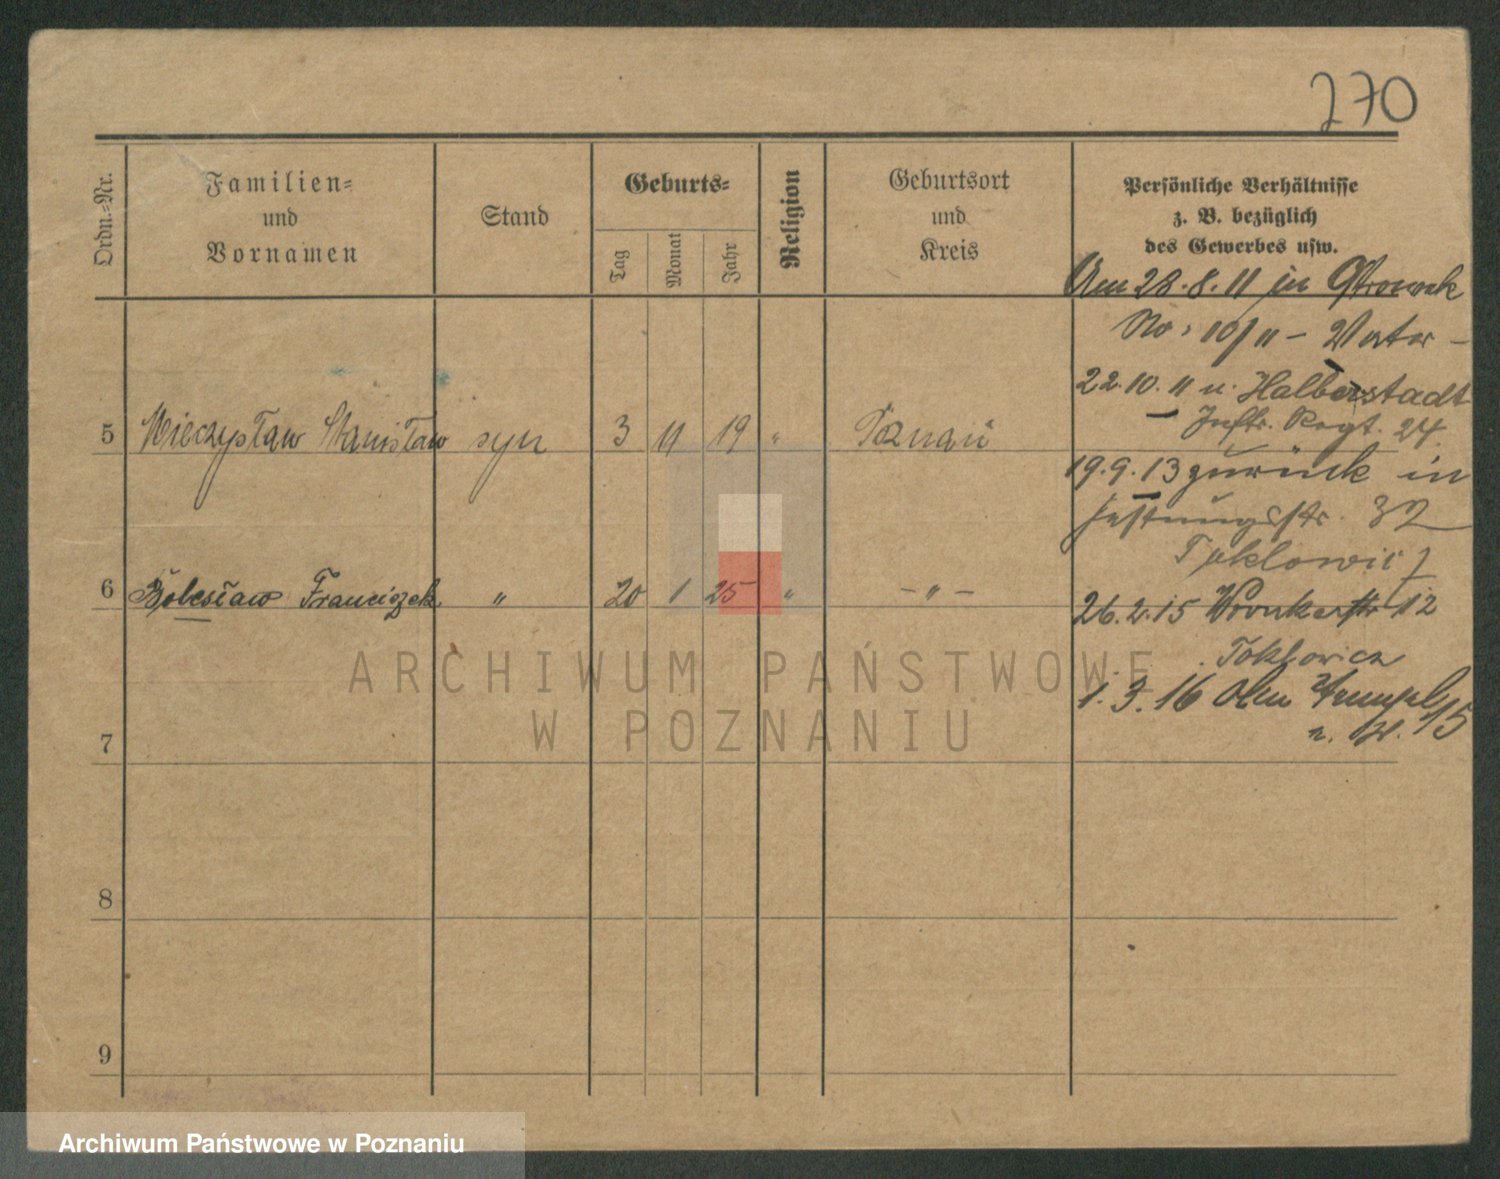 270
Ordn.-Nr.
Familien-
und
Vornamen
Stand
Geburts-
Tag
Monat
Jahr
Religion
Geburtsort
und
Kreis
Persönliche Verhältnisse
z. B. bezüglich
des Gewerbes usw.
Am 28.8.11 in
No: 10/11 – Vater –
22.10.11 n. Halberstadt
– Inftr. Regt. 24.
5 Mieczysław Stanisław syn 3 11 19 " Poznań
19.9.13 zurück in
Festungsstr. 32
6 Bolesław Franciszek " 20 1 25 " – " –
26.2.15 Wronkerstr 12
1.3.16
15
7
8
9
ARCHIWUM PAŃSTWOWE
W POZNANIU
Archiwum Państwowe w Poznaniu